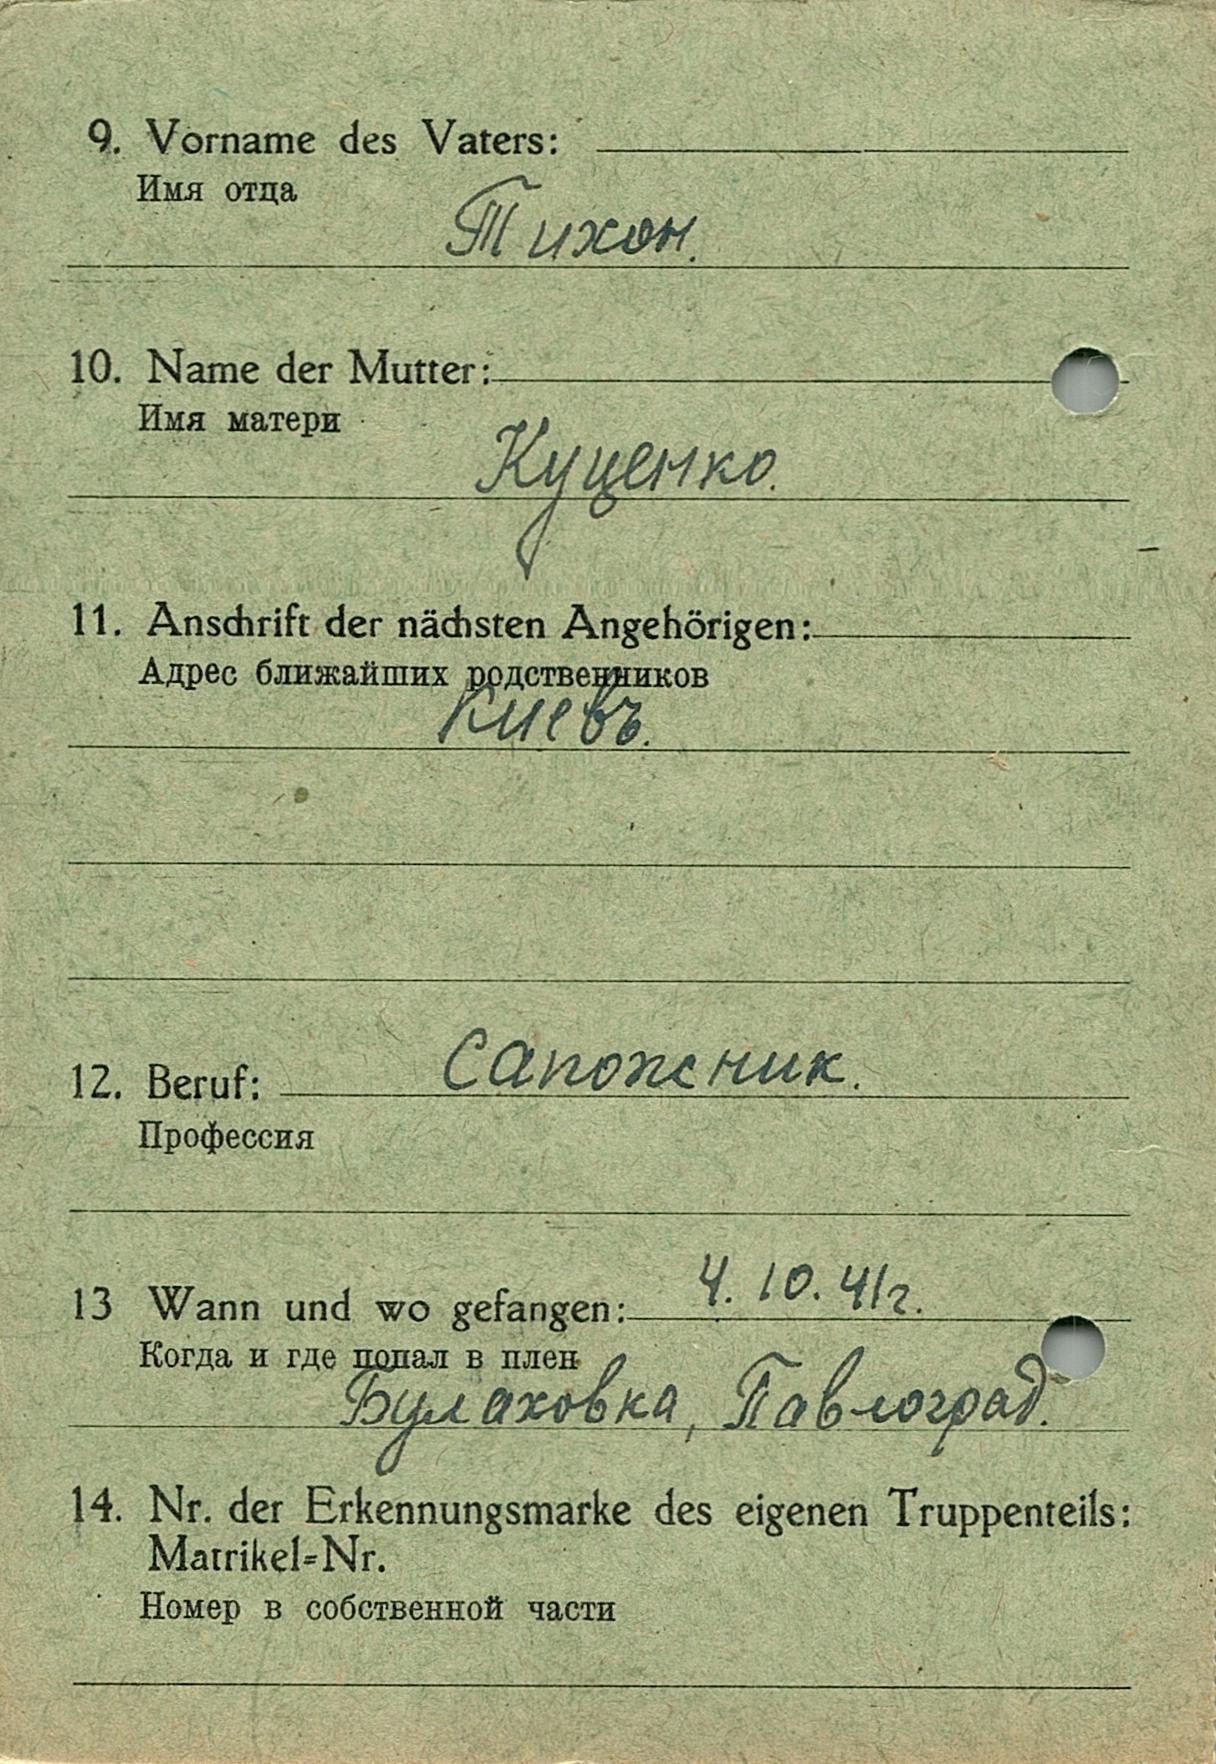 9. Vorname des Vaters:
Имя отца
Тихон.
10. Name der Mutter:
Имя матери
Куценко.
11. Anschrift der nächsten Angehörigen:
Адрес ближайших родственников
Киевъ.
Сапожник.
12. Beruf:
Профессия
4. 10. 41г.
13 Wann und wo gefangen:
Когда и где попал в плен
Булаховка, Павлоград.
14. Nr. der Erkennungsmarke des eigenen Truppenteils:
Matrikel=Nr.
Номер в собственной части